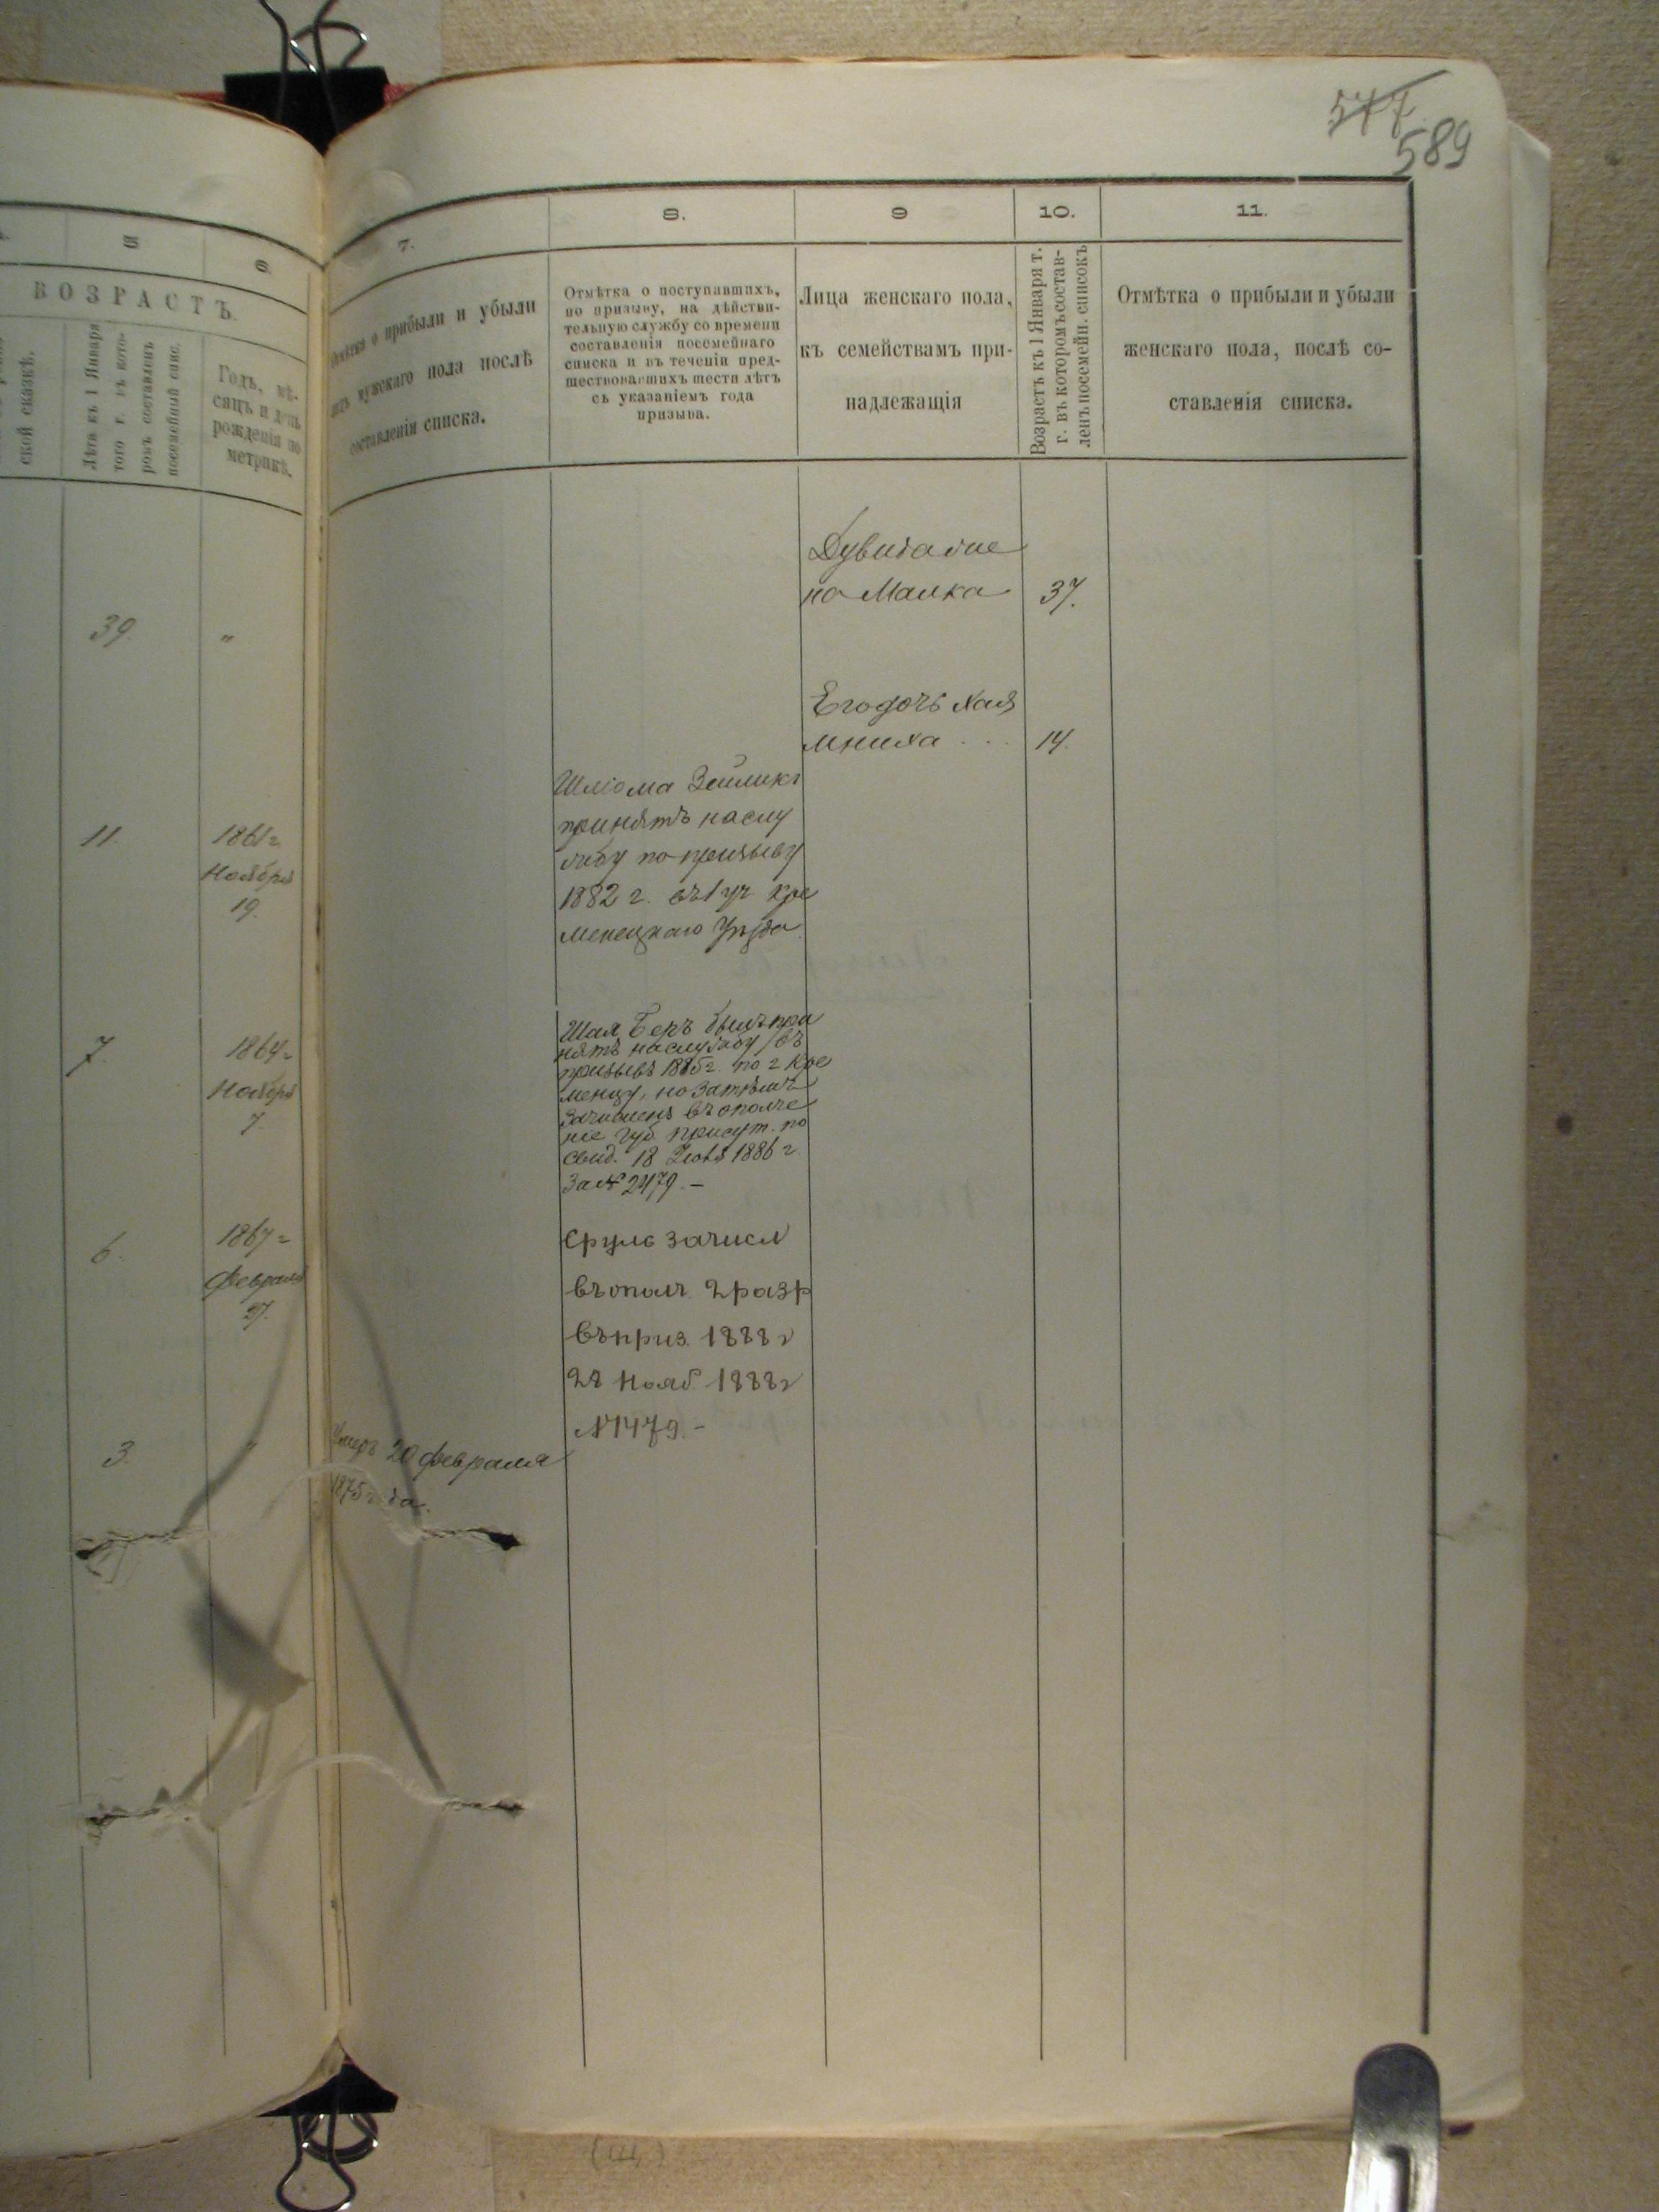 577
589
5
6.
ВОЗРАСТЪ.
ской сказкѣ.
Лѣта къ 1 Января
того г. въ кото-
ромъ составленъ
посемейный спис.
Годъ, мѣ-
сяцъ и день
рожденія по
метрикѣ.
39.
"
11.
1861 г.
Ноября
19.
7.
1864 г
Ноября
7
6.
1867 г
Февраля
27.
3.
"
7.
8.
9
10.
11.
Отмѣтка о прибыли и убыли
мужскаго пола послѣ
составленія списка.
Отмѣтка о поступавшихъ,
по призыву, на дѣйстви-
тельную службу со времени
составленія посемейнаго
списка и въ теченіи пред-
шествовавшихъ шести лѣтъ
съ указаніемъ года
призыва.
Лица женскаго пола,
къ семействамъ при-
надлежащія
Возрастъ къ 1 Января т.
г. въ которомъ состав-
ленъ посемейн. списокъ
Отмѣтка о прибыли и убыли
женскаго пола, послѣ со-
ставленія списка.
на Малка 37.
Его дочь Хая
14.
Шлiома Зейликъ
принятъ на слу
жбу по призыву
1882 г. въ 1 уч Кре
менецкаго Уѣзда.
Шая Беръ былъ при
нятъ на службу въ
призывъ 1885 г. по г Кре
менцу, но затѣмъ
зачисленъ въ ополче
ніе Губ. присут. по
свид. 18 1886 г.
За № 2479.-
Сруль зачисл
въ опол. 2 разр
въ приз. 1888 г
28 Нояб. 1888 г
№ 1479.-
Умеръ 20 февраля
1875 года.